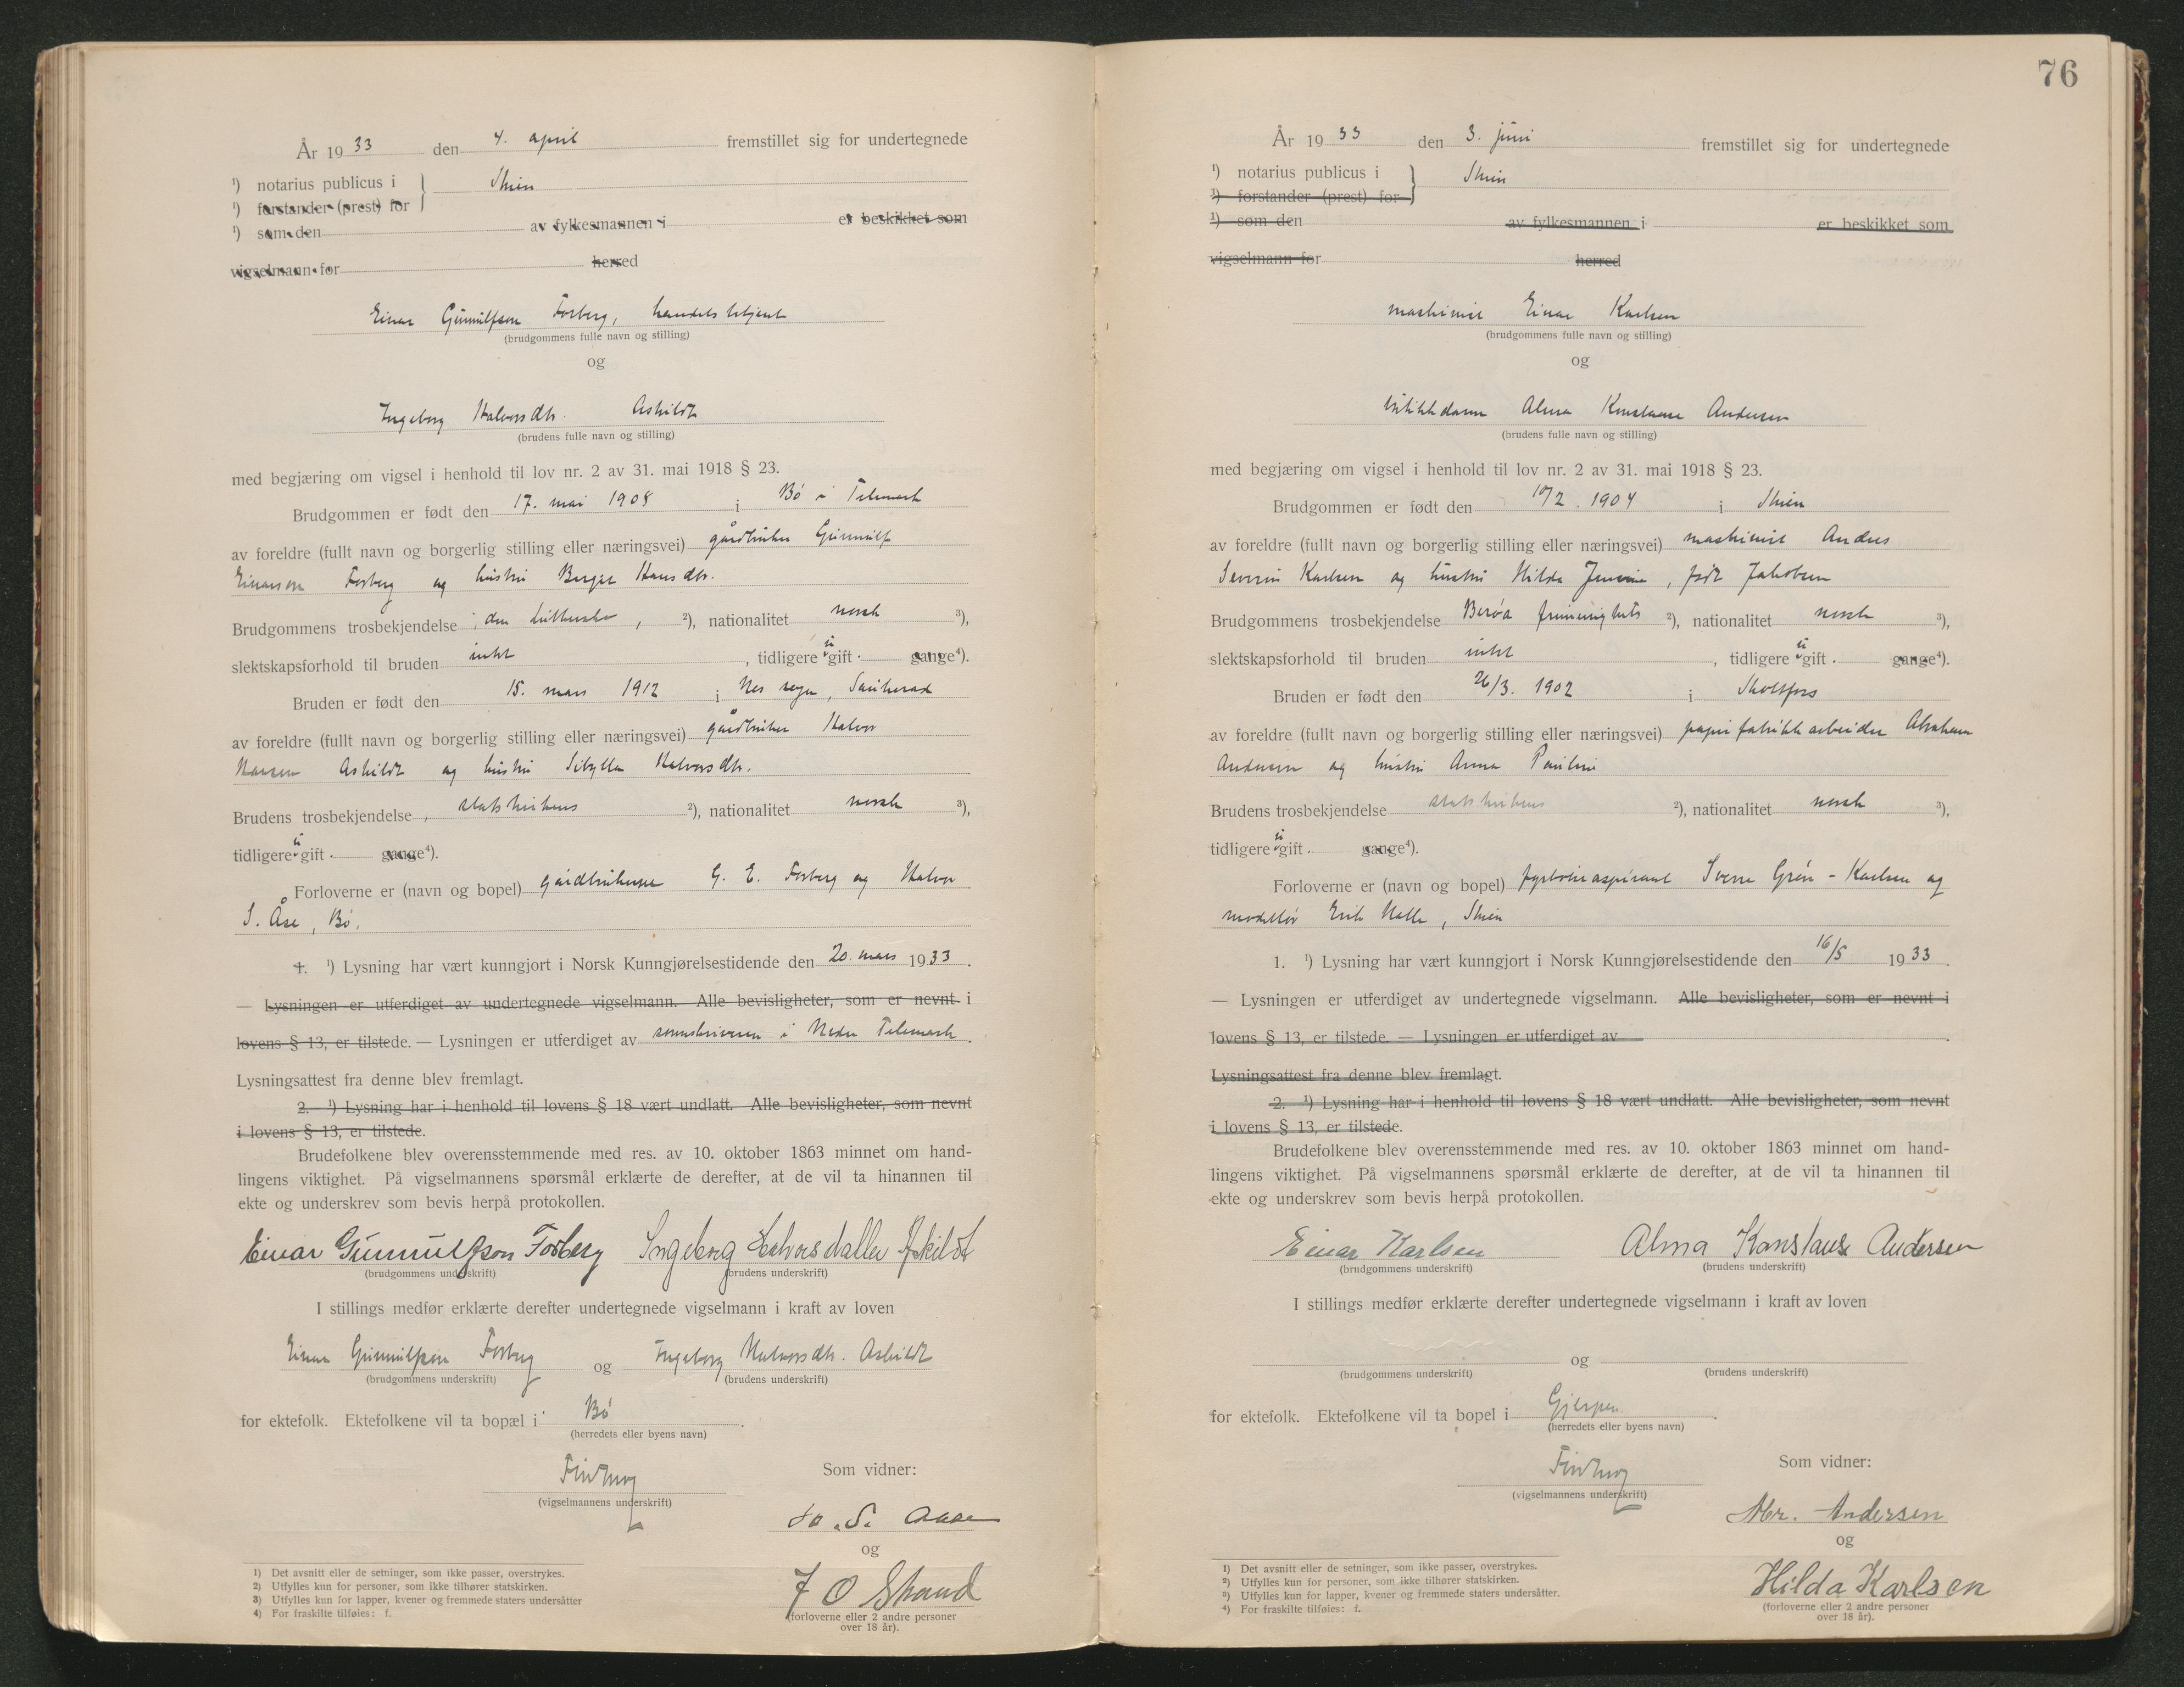 År 1933 den 4. april fremstillet sig for undertegnede
¹) notarius publicus i Skien
¹) forstander (prest) for
¹) som den av fylkesmannen i er beskikket som
vigselmann for herred
Einar Gunnulfson Forberg, handelsbetjent
(brudgommens fulle navn og stilling)
og
Ingeborg Halvorsdtr. Askildt
(brudens fulle navn og stilling)
med begjæring om vigsel i henhold til lov nr. 2 av 31. mai 1918 § 23.
Brudgommen er født den 17. mai 1908 i Bø i Telemark
av foreldre (fullt navn og borgerlig stilling eller næringsvei) gårdbruker Gunnulf
Einarson Forberg og hustru Bergit Hansdtr.
Brudgommens trosbekjendelse den lutherske, ²), nationalitet norsk ³),
slektskapsforhold til bruden intet, tidligere ugift gange⁴).
Bruden er født den 15. mars 1912 i Nes sogn, Sauherad
av foreldre (fullt navn og borgerlig stilling eller næringsvei) gårdbruker Halvor
Hansen Askildt og hustru Sibylla Halvorsdtr.
Brudens trosbekjendelse, statskirkens ²), nationalitet norsk ³),
tidligere ugift gange⁴).
Forloverne er (navn og bopel) gårdbrukerne G. E. Forberg og Halvor
S. Åse, Bø.
1. ¹) Lysning har vært kunngjort i Norsk Kunngjørelsestidende den 20. mars 1933.
— Lysningen er utferdiget av undertegnede vigselmann. Alle bevisligheter, som er nevnt i
lovens § 13, er tilstede. — Lysningen er utferdiget av sorenskriveren i Nedre Telemark.
Lysningsattest fra denne blev fremlagt.
2. ¹) Lysning har i henhold til lovens § 18 vært undlatt. Alle bevisligheter, som nevnt
i lovens § 13, er tilstede.
Brudefolkene blev overensstemmende med res. av 10. oktober 1863 minnet om hand-
lingens viktighet. På vigselmannens spørsmål erklærte de derefter, at de vil ta hinannen til
ekte og underskrev som bevis herpå protokollen.
Einar Gunnulfson Forberg Ingeborg Halvorsdatter Askildt
(brudgommens underskrift) (brudens underskrift)
I stillings medfør erklærte derefter undertegnede vigselmann i kraft av loven
Einar Gunnulfson Forberg og Ingeborg Halvorsdtr. Askildt
(brudgommens underskrift) (brudens underskrift)
for ektefolk. Ektefolkene vil ta bopæl i Bø.
(herredets eller byens navn)
Som vidner:
(vigselmannens underskrift)
H. S. Aase
og
J O Strand
(forloverne eller 2 andre personer
over 18 år).
1) Det avsnitt eller de setninger, som ikke passer, overstrykes.
2) Utfylles kun for personer, som ikke tilhører statskirken.
3) Utfylles kun for lapper, kvener og fremmede staters undersåtter
4) For fraskilte tilføies: f.
76
År 1933 den 3. juni fremstillet sig for undertegnede
¹) notarius publicus i Skien
¹) forstander (prest) for
¹) som den av fylkesmannen i er beskikket som
vigselmann for herred
maskinist Einar Karlsen
(brudgommens fulle navn og stilling)
og
butikkdame Alma Konstanse Andersen
(brudens fulle navn og stilling)
med begjæring om vigsel i henhold til lov nr. 2 av 31. mai 1918 § 23.
Brudgommen er født den 10/2. 1904 i Skien
av foreldre (fullt navn og borgerlig stilling eller næringsvei) maskinist Andres
Severin Karlsen og hustru Hilda, født Jakobsen
Brudgommens trosbekjendelse Berøa frimenighets ²), nationalitet norsk ³),
slektskapsforhold til bruden intet, tidligere ugift gange⁴).
Bruden er født den 26/3. 1902 i Skotfoss
av foreldre (fullt navn og borgerlig stilling eller næringsvei) papirfabrikkarbeider Abraham
Andersen og hustru Anna Pauline
Brudens trosbekjendelse statskirkens ²), nationalitet norsk ³),
tidligere ugift gange⁴).
Forloverne er (navn og bopel) fyrbøteraspirant Sverre Grøn-Karlsen og
modellør Erik Halle, Skien
1. ¹) Lysning har vært kunngjort i Norsk Kunngjørelsestidende den 16/5 1933.
— Lysningen er utferdiget av undertegnede vigselmann. Alle bevisligheter, som er nevnt i
lovens § 13, er tilstede. — Lysningen er utferdiget av
Lysningsattest fra denne blev fremlagt.
2. ¹) Lysning har i henhold til lovens § 18 vært undlatt. Alle bevisligheter, som nevnt
i lovens § 13, er tilstede.
Brudefolkene blev overensstemmende med res. av 10. oktober 1863 minnet om hand-
lingens viktighet. På vigselmannens spørsmål erklærte de derefter, at de vil ta hinannen til
ekte og underskrev som bevis herpå protokollen.
Einar Karlsen Alma Konstanse Andersen
(brudgommens underskrift) (brudens underskrift)
I stillings medfør erklærte derefter undertegnede vigselmann i kraft av loven
og
(brudgommens underskrift) (brudens underskrift)
for ektefolk. Ektefolkene vil ta bopel i Gjerpen.
(herredets eller byens navn)
Som vidner:
(vigselmannens underskrift)
Abr. Andersen
og
Hilda Karlsen
(forloverne eller 2 andre personer
over 18 år).
1) Det avsnitt eller de setninger, som ikke passer, overstrykes.
2) Utfylles kun for personer, som ikke tilhører statskirken.
3) Utfylles kun for lapper, kvener og fremmede staters undersåtter.
4) For fraskilte tilføies: f.